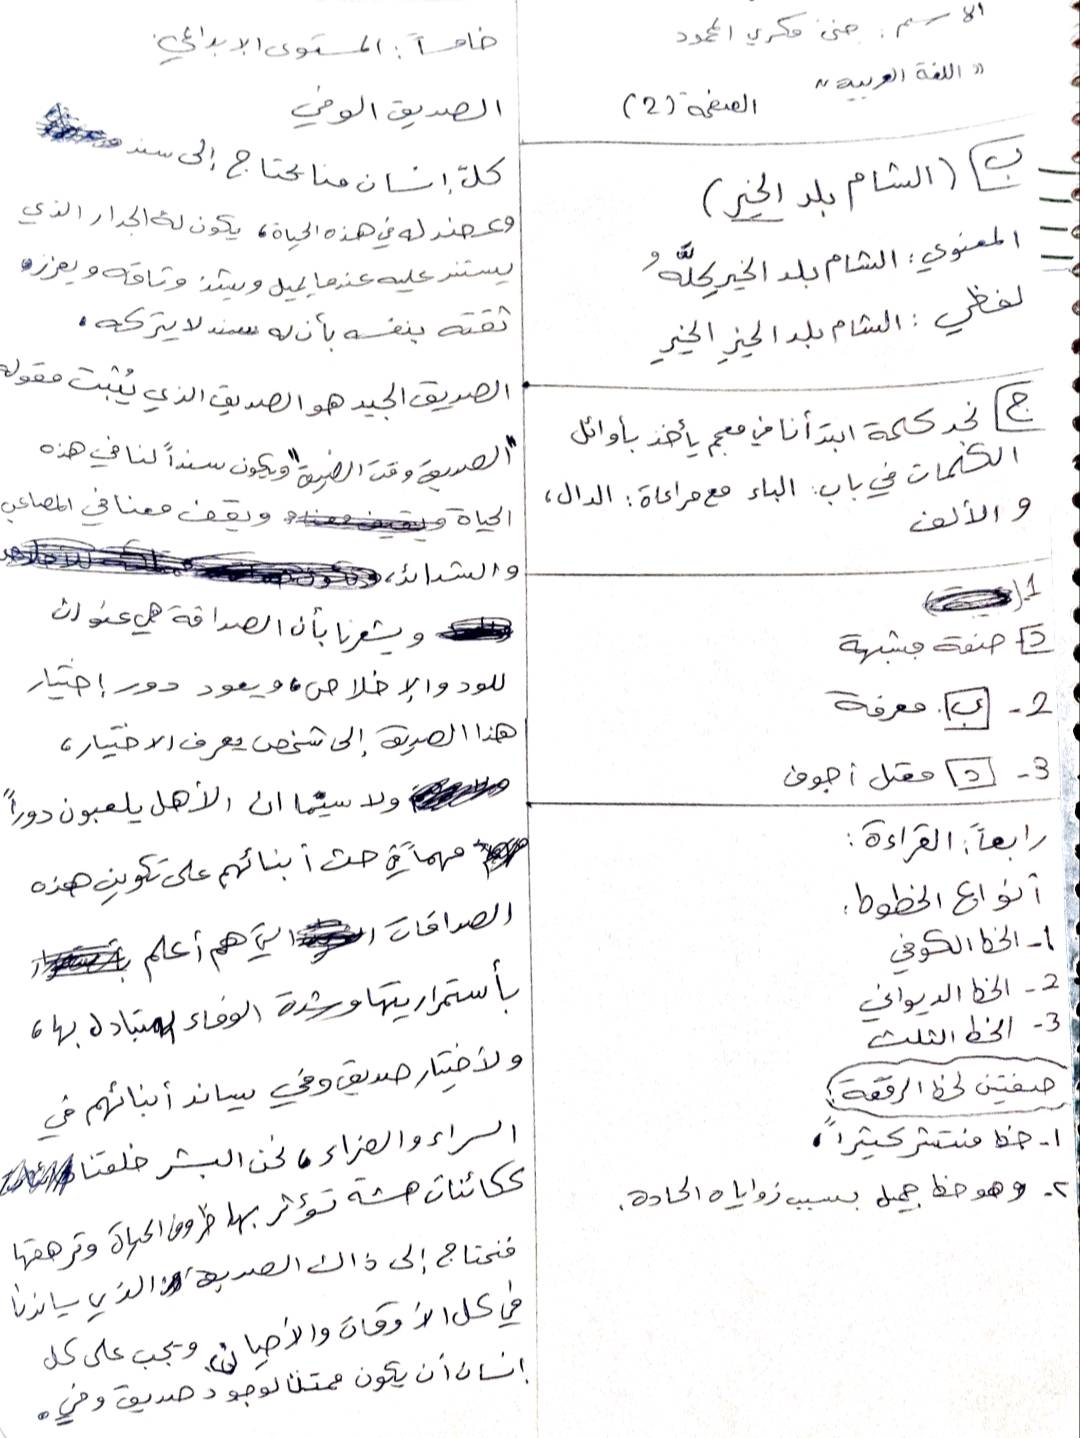 الاسم: جنى فكري المحمود
"اللغة العربية"
الصفحة (2)
ب (الشام بلد الخير)
المعنوي: الشام بلد الخير كلّه و
لفظي: الشام بلد الخير الخير
ج نجد كلمة ابتدأنا في معجم يأخذ بأوائل
الكلمات في باب: الباء مع مراعاة: الدال،
و الألف
1.
د صفة مشبهة
2- ب. معرفة
3- د معتل أجوف
رابعاً: القراءة:
أنواع الخطوط:
1- الخط الكوفي
2- الخط الديواني
3- الخط الثلث
صفتين لخط الرقعة:
1- خط منتشر كثيراً،
٢- وهو خط جميل بسبب زواياه الحادة.
خامساً: المستوى الإبداعي:
الصديق الوفي
كلّ إنسان منا يحتاج إلى سند
وعضد له في هذه الحياة، يكون له الجدار الذي
يستند عليه عندما يميل ويشدّ وثاقه ويعزز
ثقته بنفسه بأن له سند لا يتركه.
الصديق الجيد هو الصديق الذي يُثبت مقولة
"الصديق وقت الضيق" ويكون سنداً لنا في هذه
الحياة ويقف معنا في المصاعب
والشدائد،
ويشعرنا بأن الصداقة هي عنوان
للود والإخلاص، ويعود دور إختيار
هذا الصديق إلى شخص يعرف الاختيار،
ولا سيّما ان الأهل يلعبون دوراً
مهماً في حث أبنائهم على تكوين هذه
الصداقات التي هم أعلم
بأستمراريتها وشدة الوفاء المتبادل بها،
ولأختيار صديق وفي يساند أبنائهم في
السراء والضراء، نحن البشر خلقنا
ككائنات هشة تؤثر بها ظروف الحياة وترهقها
فنحتاج إلى ذاك الصديق الذي يساندنا
في كل الأوقات والأحيان، ويجب على كل
إنسان أن يكون ممتناً لوجود صديق وفي.